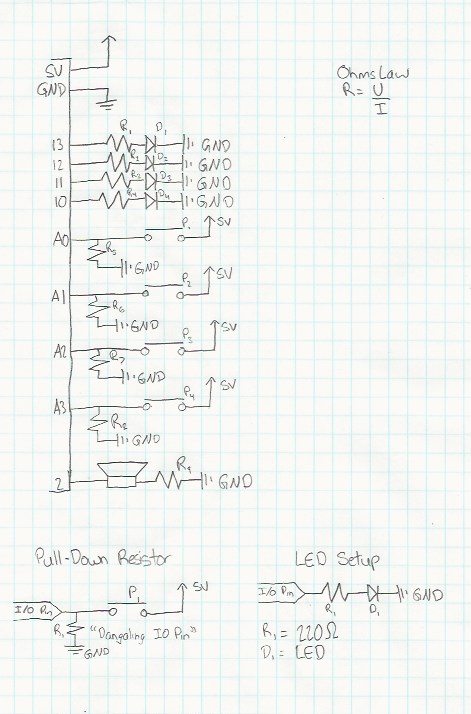 5V
GND
Ohms Law
R = U
I
13 R1 D1 GND
12 R2 D2 GND
11 R3 D3 GND
10 R4 D4 GND
A0 P1 5V
R5
GND
A1 P2 5V
R6
GND
A2 P3 5V
R7
GND
A3 P4 5V
R8
GND
2 R9 GND
Pull-Down Resistor
I/O Pin P1 5V
R1 "Dangaling IO Pin"
GND
LED Setup
I/O Pin R1 D1 GND
R1 = 220Ω
D1 = LED